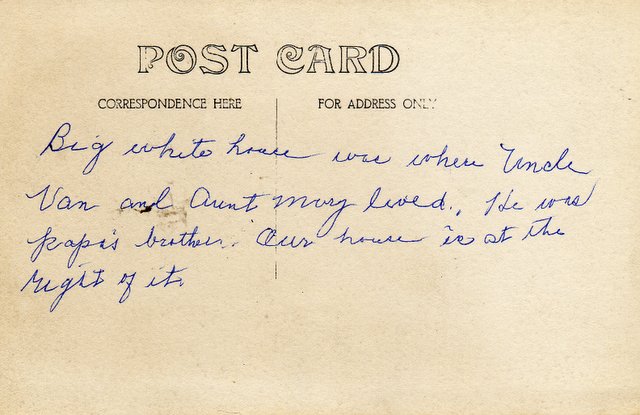 POST CARD
CORRESPONDENCE HERE
FOR ADDRESS ONLY
Big white house was where Uncle
Van and Aunt Mary lived. He was
papa's brother. Our house is at the
right of it.